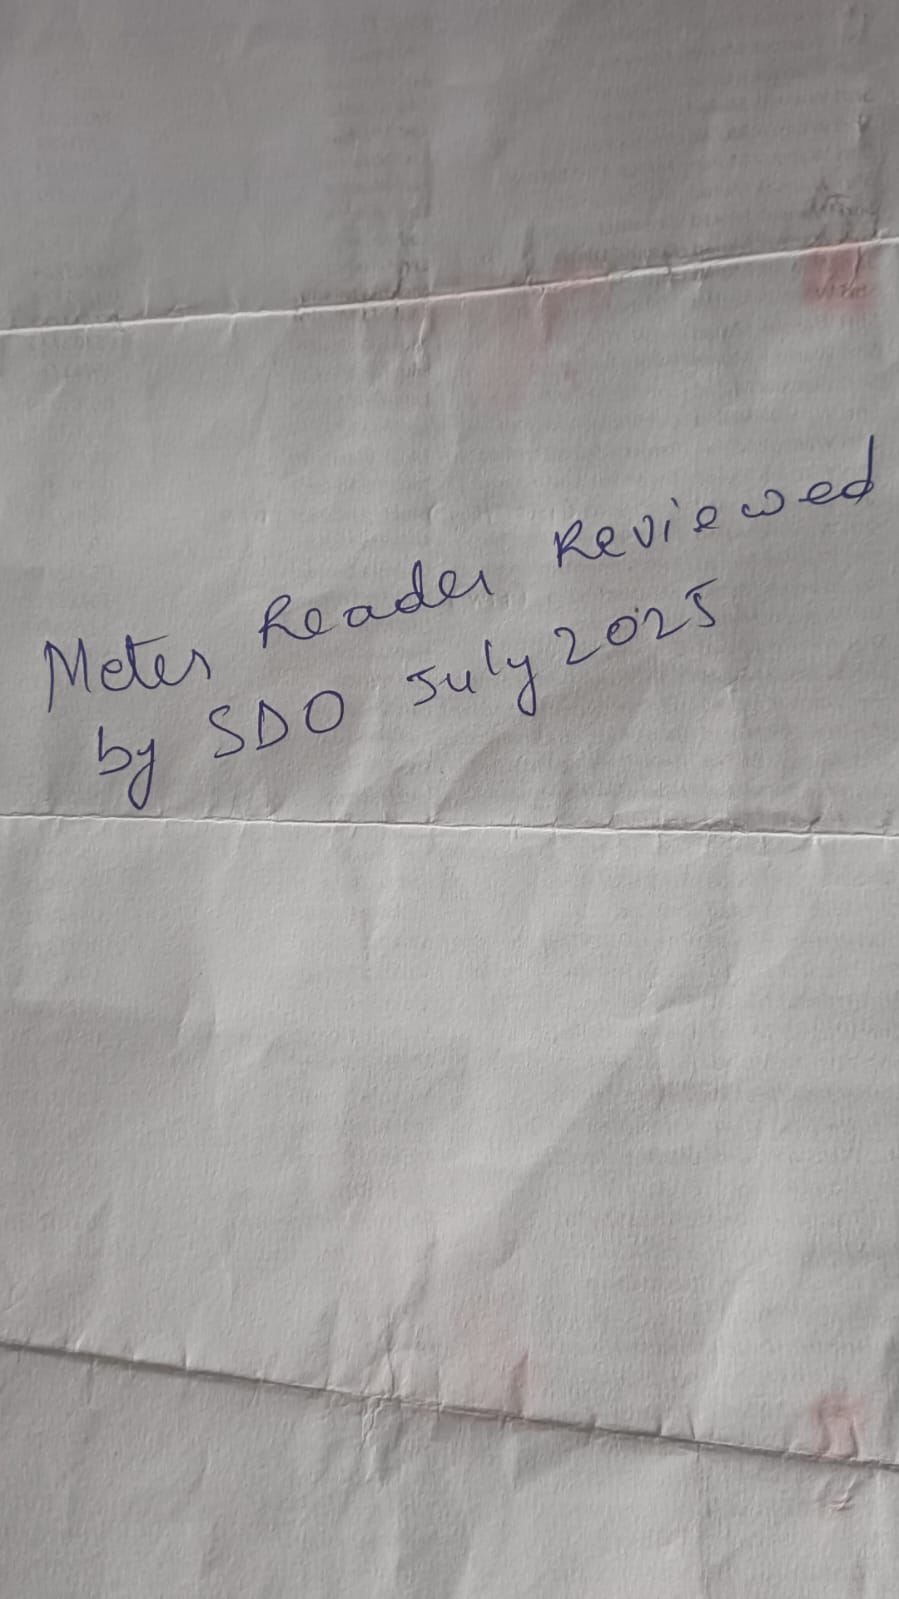 Meter Reader Reviewed
by SDO July 2025